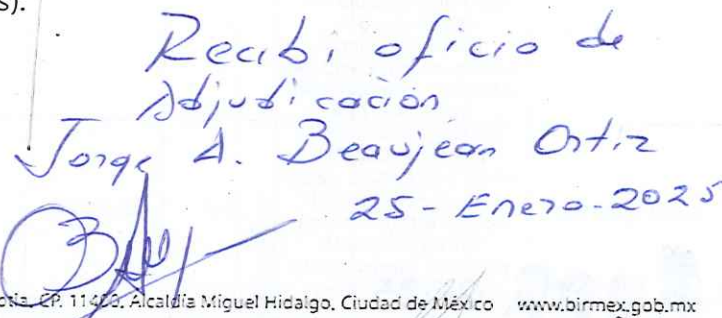 s).
Recibi oficio de
Adjudicación
Jorge A. Beaujean Ortiz
25-Enero-2025
CP. 11400, Alcaldía Miguel Hidalgo, Ciudad de México www.birmex.gob.mx